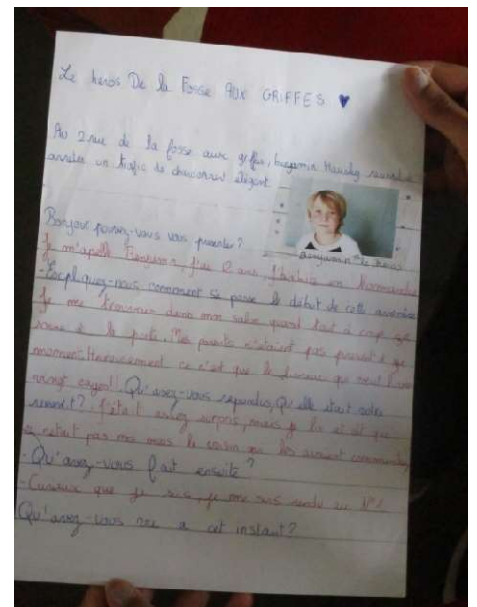 Le heros De la Fosse AUX GRIFFES
Au 2 rue de la fosse aux griffes, benjamin
arreter un trafic de élégant
benjamin le héros
Bonjour pouvez-vous vous presenter?
- Je m'apelle Benjamin, j'ai 12 ans j'habite en Normandie
- Expliquez-nous comment se passe le début de cette aventure
Je me trouvais dans mon salon quand tout à coup ça
sonne à la porte. Mes parents n'étaient pas present à ce
moment. Heureusement ce n'est que le facteur qui veut livrer
vingt cages! Qu'avez-vous repondu, Qu'elle était votre
? J'étais assez surpris, mais je lui ai dit que
ce n'etait pas moi mais le voisin qui les avaient commandés
- Qu'avez-vous fait ensuite?
- Curieux que je suis, je me suis rendu au N°
Qu'avez-vous vu a cet instant?